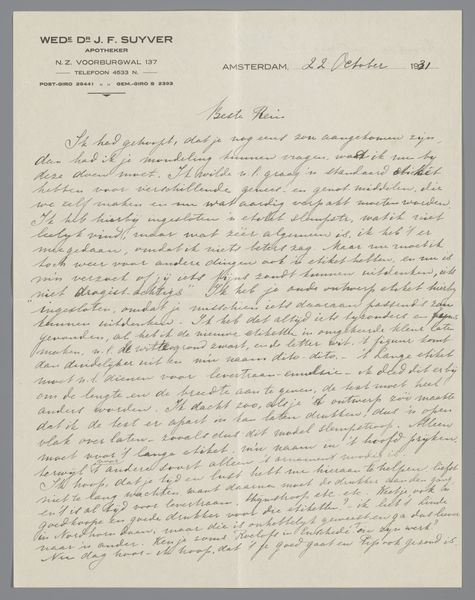 WEDE DR J. F. SUYVER
APOTHEKER
N. Z. VOORBURGWAL 137
TELEFOON 4633 N.
POST-GIRO 29441 " " GEM.-GIRO S 2393
AMSTERDAM, 22 October 1931
Beste Rein
Ik had gehoopt, dat je nog eens zou aangekomen zijn,
dan had ik je mondeling kunnen vragen, wat ik nu bij
deze doen moet. Ik wilde n.l. graag 'n standaard etiket
hebben voor verschillende genees- en genotmiddelen, die
we zelf maken en nu wat aardig verpakt moeten worden.
Ik heb hierbij ingesloten 'n etiket slempstr., wat ik niet
leelijk vind, maar wat zéér algemeen is, ik heb 't er
meegedaan, omdat ik niets beters zag. Maar nu moet ik
toch weer voor andere dingen ook 'n etiket hebben, en nu is
mijn verzoek of jij iets fijns zoudt kunnen uitdenken, iets
niet drogist-achtigs. Ik heb je oude ontwerp etiket hierbij
ingesloten, omdat je misschien iets daaraan passends zou
kunnen uitdenken. Ik heb dat altijd iets bijzonders en
gevonden, al heb ik de nieuwe etiketten in omgekeerde kleur laten
maken, n.l. de grond zwart, en de letter wit. 't figuur komt
dan duidelijker uit en mijn naam dito-dito. - 't lange etiket
moet n.l. dienen voor levertraan-emulsie - ik deed dit erbij
om de lengte en de breedte aan te geven, de text moet heel
anders worden. Ik dacht zoo, als je 't ontwerp zóó maakte
dat ik de text er apart in kan laten drukken, dus 'n open
vlak overlaten - zooals dus dit model slempstroop. Alleen
moet voor 't lange etiket mijn naam in 't hoofd prijken,
terwijl 't andere soort alleen 't ornament moet
Ik hoop, dat je tijd en lust hebt me hieraan te helpen, liefst
niet te lang wachten, want daarna moet de drukker aan den gang
en 't is al tijd voor levertraan - thijmstroop etc. etc. Weet je ook 'n
goedkoope en goede drukker voor die etiketten? - ik heb 'n kinde
in Noordhorn daar, maar die is onhebbelijk geweest en ga dus liever
naar 'n ander. Ken je soms Roelofs in Enschedé en zijn werk?
Nu dag hoor - ik hoop, dat 't je goed gaat en Piep ook gezond is.